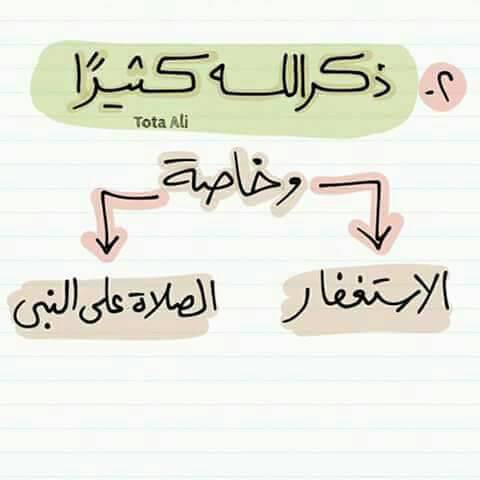 ٢- ذكر الله كثيرًا
Tota Ali
وخاصة
الاستغفار
الصلاة على النبى